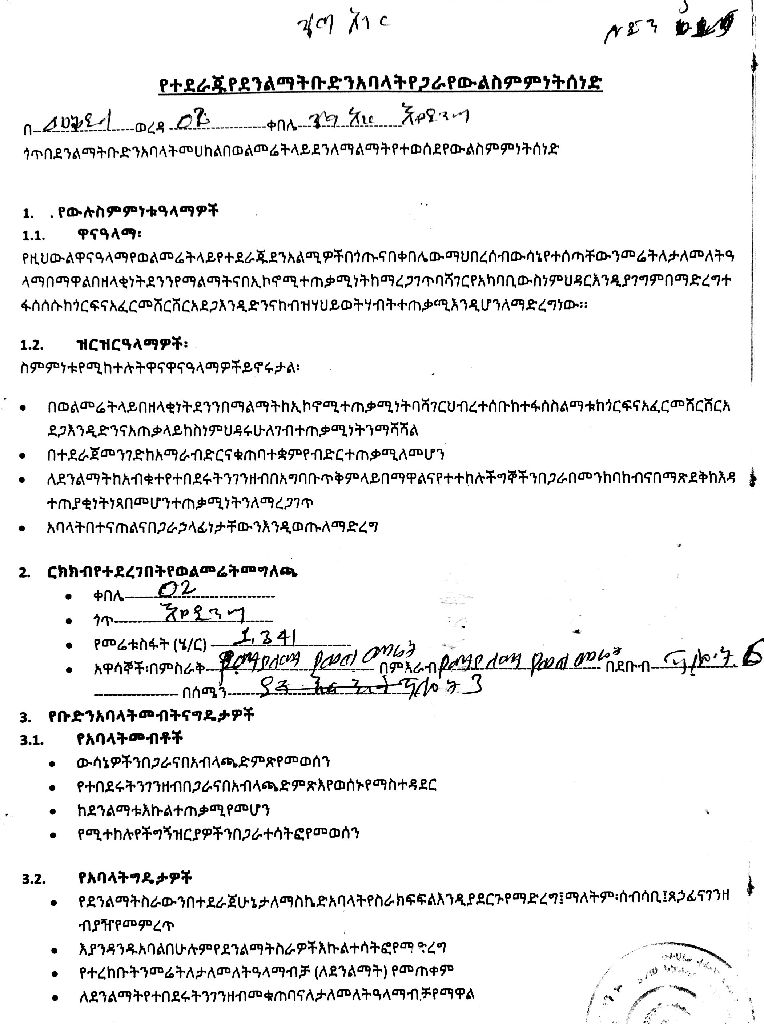 የተደራጁየደንልማትቡድንአባላትየጋራየውልስምምነትሰነድ
በ ወረዳ 02 ቀበሌ
ጎጥበደንልማትቡድንአባላትመሀከልበወልመሬትላይደንለማልማትየተወሰደየውልስምምነትሰነድ
1. .የውሉስምምነቱዓላማዎች
1.1. ዋናዓላማ፡
የዚህውልዋናዓላማየወልመሬትላይየተደራጁደንአልሚዎችበጎጡናበቀበሌውማህበረሰብውሳኔየተሰጣቸውንመሬትለታለመለትዓ
ላማበማዋልበዘላቂነትደንንየማልማትናበኢኮኖሚተጠቃሚነትከማረጋገጥባሻገርየአካባቢውስነምህዳርእንዲያገግምበማድረግተ
ፋሰሰሱከጎርፍናአፈርመሸርሸርአደጋእንዲድንናከብዝሃህይወትሃብትተጠቃሚእንዲሆንለማድረግነው።
1.2. ዝርዝርዓላማዎች፡
ስምምነቱየሚከተሉትዋናዋናዓላማዎችይኖሩታል፡
• በወልመሬትላይበዘላቂነትደንንበማልማትከኢኮኖሚተጠቃሚነትባሻገርህብረተሰቡከተፋሰስልማቱከጎርፍናአፈርመሸርሸርአ
ደጋእንዲድንናአጠቃላይከስነምህዳሩሁለገብተጠቃሚነትንማሻሻል
• በተደራጀመንገድከአማራብድርናቁጠባተቋምየብድርተጠቃሚለመሆን
• ለደንልማትከአብቁተየተበደሩትንገንዘብበአግባቡጥቅምላይበማዋልናየተተከሉችግኞችንበጋራበመንከባከብናበማጽደቅከእዳ
ተጠያቂነትነጻበመሆንተጠቃሚነትንለማረጋገጥ
• አባላትበተናጠልናበጋራኃላፊነታቸውንእንዲወጡለማድረግ
2. ርክክብየተደረገበትየወልመሬትመግለጫ
• ቀበሌ 02
• ጎጥ
• የመሬቱስፋት (ሄ/ር) 1.341
• አዋሳኞች፡በምስራቅ በምእራብ በደቡብ
በሰሜን
3. የቡድንአባላትመብትናግዴታዎች
3.1. የአባላትመብቶች
• ውሳኔዎችንበጋራናበአብላጫድምጽየመወሰን
• የተበደሩትንገንዘብበጋራናበአብላጫድምጽእየወሰኑየማስተዳደር
• ከደንልማቱእኩልተጠቃሚየመሆን
• የሚተከሉየችግኝዝርያዎችንበጋራተሳትፎየመወሰን
3.2. የአባላትግዴታዎች
• የደንልማትስራውንበተደራጀሁኔታለማስኬድአባላትየስራክፍፍልእንዲያደርጉየማድረግ፤ማለትም፡ሰብሳቢ፤ጸኃፊናገንዘ
ብያዥየመምረጥ
• እያንዳንዱአባልበሁሉምየደንልማትስራዎችእኩልተሳትፎየማድረግ
• የተረከቡትንመሬትለታለመለትዓላማብቻ (ለደንልማት) የመጠቀም
• ለደንልማትየተበደሩትንገንዘብመቁጠባናለታለመለትዓላማብቻየማዋል